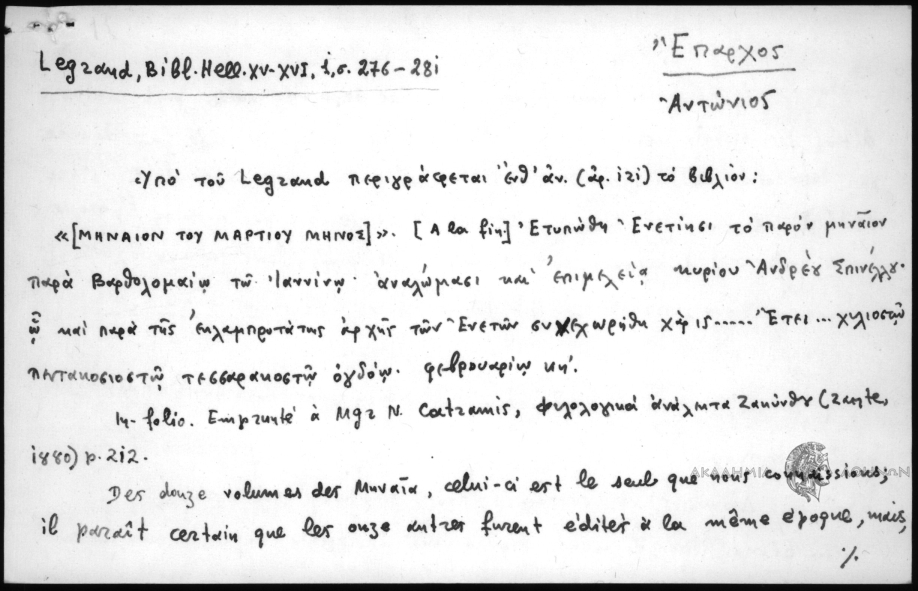 Legrand, Bibl. Hell. XV-XVI, 1, σ. 276-281
Ἔπαρχος
Ἀντώνιος
Ὑπὸ τοῦ Legrand περιγράφεται ἐνθ' ἀν. (ἀρ. 121) τὸ βιβλίον:
«[ΜΗΝΑΙΟΝ ΤΟΥ ΜΑΡΤΙΟΥ ΜΗΝΟΣ]». [A la fin] Ἐτυπώθη Ἐνετίησι τὸ παρὸν μηναῖον
παρὰ Βαρθολομαίῳ τῷ Ἰαννίνῳ ἀναλώμασι καὶ ἐπιμελείᾳ κυρίου Ἀνδρέου Σπινέλλου.
ᾧ καὶ παρὰ τῆς ἐκλαμπροτάτης ἀρχῆς τῶν Ἐνετῶν συνεχωρήθη χάρις..... Ἔτει... χιλιοστῷ
πεντακοσιοστῷ τεσσαρακοστῷ ὀγδόῳ. φεβρουαρίῳ κή.
In-folio. Emprunté à Mgr N. Catramis, Φιλολογικὰ ἀνάλεκτα Ζακύνθου (Zante,
1880) p. 212.
Des douze volumes des Μηναῖα, celui-ci est le seul que nous connaissions;
il paraît certain que les onze autres furent édités à la même époque, mais,
./.
ΑΚΑΔΗΜΙΑ ΑΘΗΝΩΝ